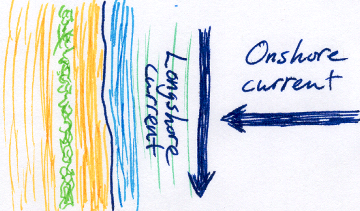 Onshore
current
Longshore
current